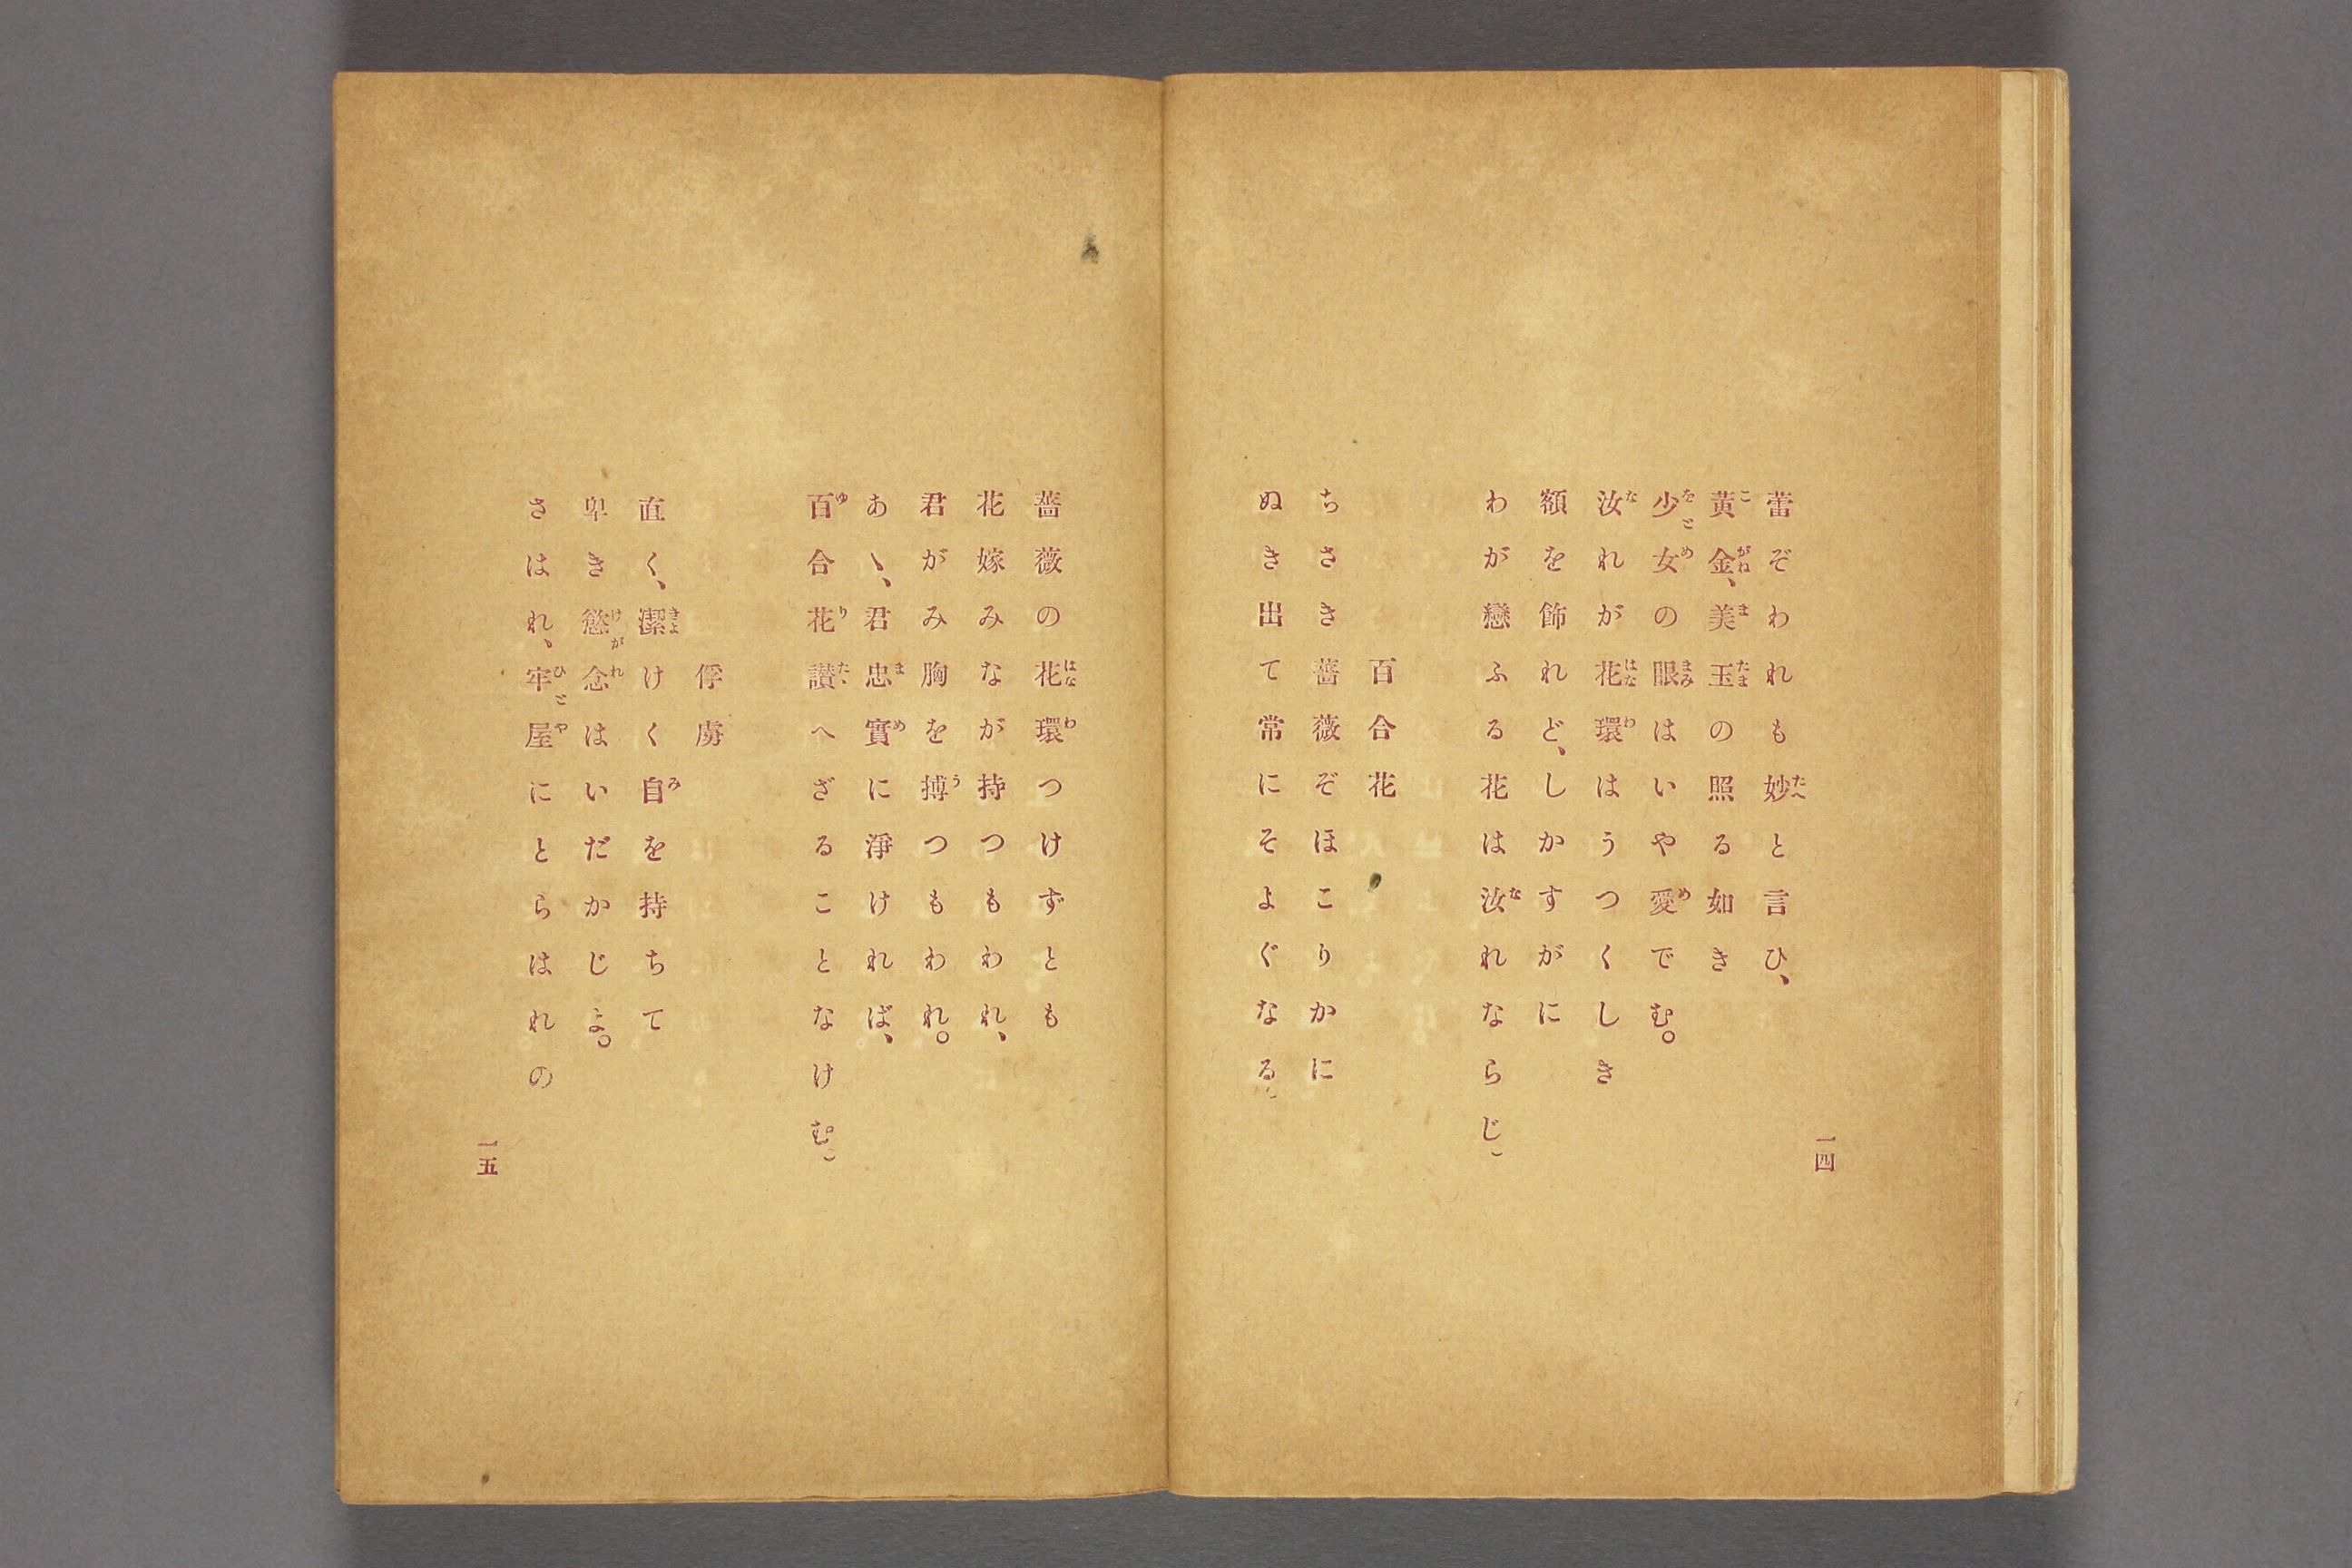 蕾ぞわれも妙と言ひ、
黄金、美玉の照る如き
少女の眼はいや愛でむ。
汝れが花環はうつくしき
額を飾れど、しかすがに
わが戀ふる花は汝れならじ。
百合花
ちさき薔薇ぞほこりかに
ぬき出て常にそよぐなる。
一四
薔薇の花環つけずとも
花嫁みなが持つもわれ、
君がみ胸を搏つもわれ。
あゝ、君忠實に淨ければ、
百合花讃へざることなけむ。
俘虜
直く、潔けく自を持ちて
卑き慾念はいだかじよ。
さはれ、牢屋にとらはれの
一五